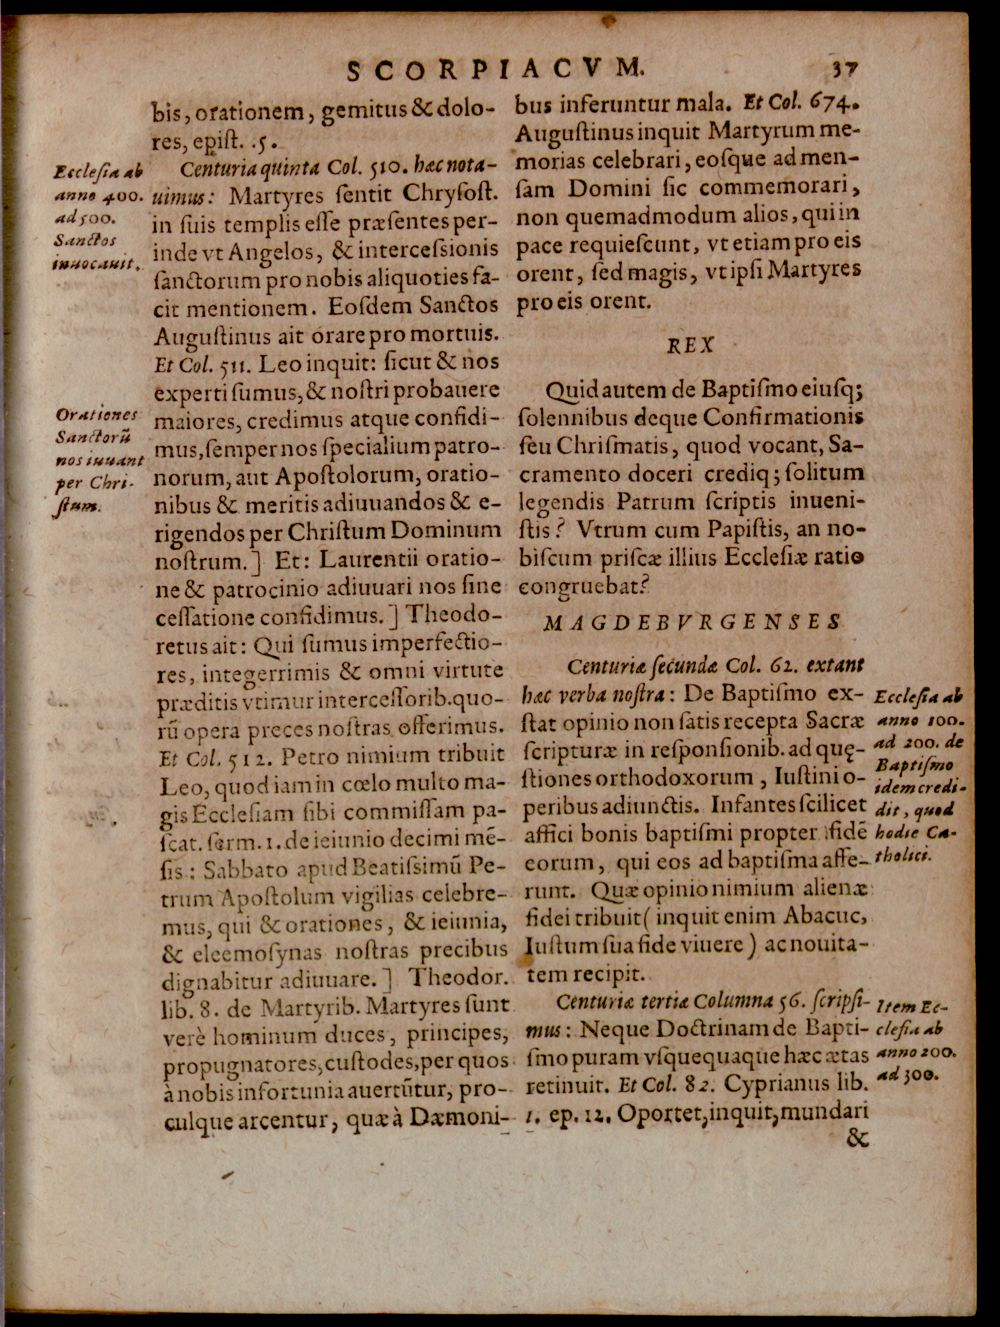 SCORPIACVM. 37
bis, orationem, gemitus & dolo-
res, epiſt. .5.
Centuria quinta Col. 510. hæc nota-
uimus: Martyres ſentit Chryſoſt.
in ſuis templis eſſe præſentes per-
inde vt Angelos, & interceſsionis
ſanctorum pro nobis aliquoties fa-
cit mentionem. Eoſdem Sanctos
Auguſtinus ait orare pro mortuis.
Et Col. 511. Leo inquit: ſicut & nos
experti ſumus, & noſtri probauere
maiores, credimus atque confidi-
mus, ſemper nos ſpecialium patro-
norum, aut Apoſtolorum, oratio-
nibus & meritis adiuuandos & e-
rigendos per Chriſtum Dominum
noſtrum.] Et: Laurentii oratio-
ne & patrocinio adiuuari nos ſine
ceſſatione confidimus.] Theodo-
retus ait: Qui ſumus imperfectio-
res, integerrimis & omni virtute
præditis vtimur interceſſorib. quo-
rū opera preces noſtras offerimus.
Et Col. 512. Petro nimium tribuit
Leo, quod iam in cœlo multo ma-
gis Eccleſiam ſibi commiſſam pa-
ſcat. ſerm. 1. de ieiunio decimi mē-
ſis: Sabbato apud Beatiſsimū Pe-
trum Apoſtolum vigilias celebre-
mus, qui & orationes, & ieiunia,
& eleemoſynas noſtras precibus
dignabitur adiuuare.] Theodor.
lib. 8. de Martyrib. Martyres ſunt
verè hominum duces, principes,
propugnatores, cuſtodes, per quos
à nobis infortunia auertūtur, pro-
culque arcentur, quæ à Dæmoni-
Eccleſia ab
anno 400.
ad 500.
Sanctos
inuocauit.
Orationes
Sanctorū
nos iuuant
per Chri-
ſtum.
bus inferuntur mala. Et Col. 674.
Auguſtinus inquit Martyrum me-
morias celebrari, eoſque ad men-
ſam Domini ſic commemorari,
non quemadmodum alios, qui in
pace requieſcunt, vt etiam pro eis
orent, ſed magis, vt ipſi Martyres
pro eis orent.
REX
Quid autem de Baptiſmo eiuſq;
ſolennibus deque Confirmationis
ſeu Chriſmatis, quod vocant, Sa-
cramento doceri crediq; ſolitum
legendis Patrum ſcriptis inueni-
ſtis? Vtrum cum Papiſtis, an no-
biſcum priſcæ illius Eccleſiæ ratio
congruebat?
MAGDEBVRGENSES
Centuriæ ſecundæ Col. 62. extant
hæc verba noſtra: De Baptiſmo ex-
ſtat opinio non ſatis recepta Sacræ
ſcripturæ in reſponſionib. ad quę-
ſtiones orthodoxorum, Iuſtini o-
peribus adiunctis. Infantes ſcilicet
affici bonis baptiſmi propter fidē
eorum, qui eos ad baptiſma affe-
runt. Quæ opinio nimium alienæ
fidei tribuit (inquit enim Abacuc,
Iuſtum ſua fide viuere) ac nouita-
tem recipit.
Centuriæ tertiæ Columna 56. ſcripſi-
mus: Neque Doctrinam de Bapti-
ſmo puram vſquequaque hæc ætas
retinuit. Et Col. 82. Cyprianus lib.
1. ep. 12. Oportet, inquit, mundari
&
Eccleſia ab
anno 100.
ad 200. de
Baptiſmo
idem credi-
dit, quod
hodie Ca-
tholici.
Item Ec-
cleſia ab
anno 200.
ad 300.